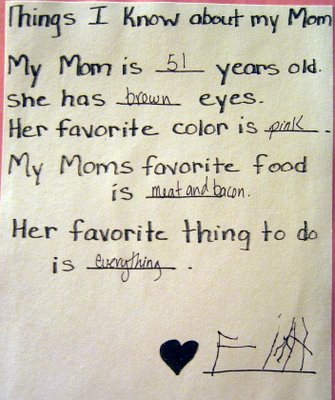 Things I Know about my Mom
My Mom is 51 years old.
She has brown eyes.
Her favorite color is pink.
My Moms favorite food
is meat and bacon.
Her favorite thing to do
is everything.